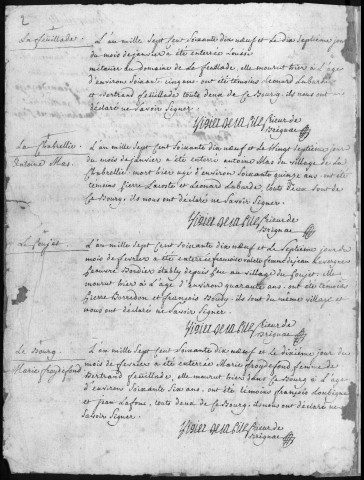 2
La feuillade.
L'an mille sept cent soixante dix neuf et le dix septieme jour
du mois de janvier a été enterrée Louise
métaier du domaine de La feuillade, elle mourut hier a l'age
d'environ soixante cinq ans, ont été temoins Leonard Laborde
et Bertrand feuillade touts deux de ce Bourg, ils nous ont
déclaré ne savoir signer.
Prieur de
Brignac
La Chabrellie
Antoine Mas.
L'an mille sept cent soixante dix neuf et le vingt septieme jour
du mois de janvier a été enterré antoine Mas du village de La
Chabrellie, mort hier agé d'environ soixante quinze ans, ont été
temoins pierre Lacoste et Leonard Laborde, touts deux sont de
ce Bourg. ils nous ont déclaré ne savoir signer.
Prieur de
Brignac
Le foujet
L'an mille sept cent soixante dix neuf et le septieme jour
du mois de fevrier a été enterrée francoise femme de jean
pauvre Bordier etably depuis peu au village du foujet. elle
mourut hier a l'age d'environ quarante ans, ont été temoins
pierre et françois ils sont du même village et
nous ont déclaré ne savoir signer.
Prieur de
Brignac
Le Bourg
Marie froydefond
L'an mille sept cent soixante dix neuf et le sixieme jour du
mois de fevrier a été enterrée Marie froydefond femme de
Bertrand feuillade, elle mourut hier dans ce Bourg a l'age
d'environ soixante six ans, ont été temoins françois
et jean Lafont, touts deux de ce Bourg, ils nous ont déclaré ne
savoir signer.
Prieur de
Brignac